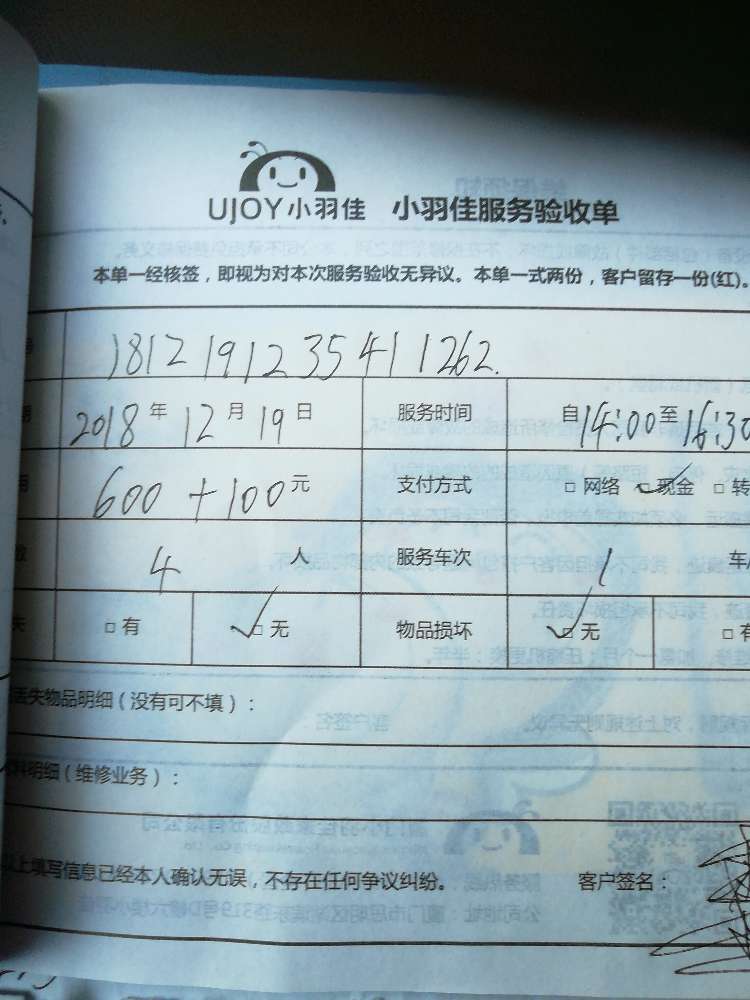 UJOY小羽佳 小羽佳服务验收单
本单一经核签，即视为对本次服务验收无异议。本单一式两份，客户留存一份(红)。
1812191235411262.
2018年12月19日 服务时间 自14:00至16:30
600+100元 支付方式 □ 网络 □ 现金 □ 转
4 人 服务车次 1 车
□ 有 □ 无 物品损坏 □ 无 □ 有
丢失物品明细（没有可不填）：
料明细（维修业务）：
以上填写信息已经本人确认无误，不存在任何争议纠纷。 客户签名：